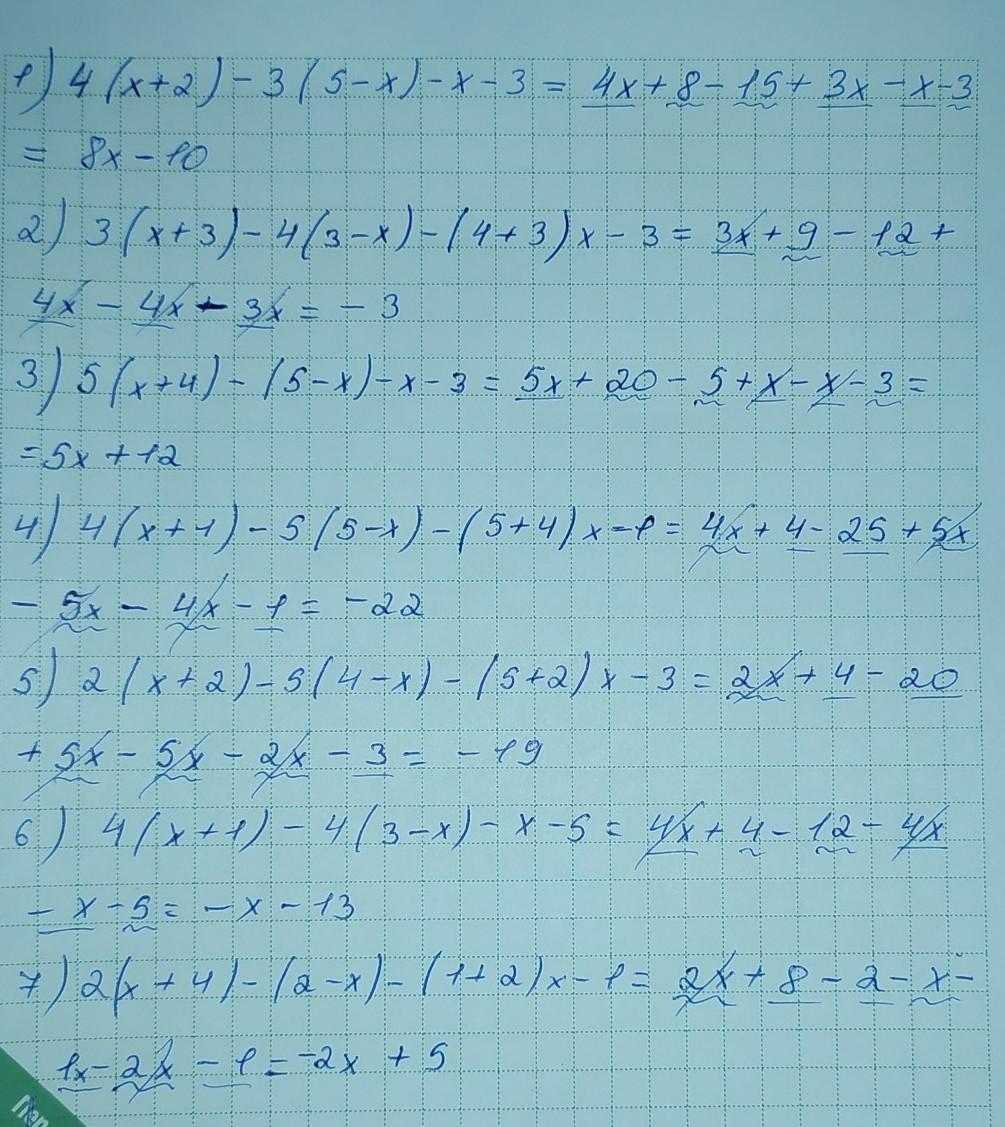 1) 4(x+2)-3(5-x)-x-3 = 4x+8-15+3x-x-3
= 8x-10
2) 3(x+3)-4(3-x)-(4+3)x-3 = 3x+9-12+
4x-4x-3x = -3
3) 5(x+4)-(5-x)-x-3 = 5x+20-5+x-x-3 =
=5x+12
4) 4(x+1)-5(5-x)-(5+4)x-1 = 4x+4-25+5x
-5x-4x-1 = -22
5) 2(x+2)-5(4-x)-(5+2)x-3 = 2x+4-20
+5x-5x-2x-3 = -19
6) 4(x+1)-4(3-x)-x-5 = 4x+4-12-4x
-x-5 = -x-13
7) 2(x+4)-(2-x)-(1+2)x-1 = 2x+8-2-x-
1x-2x-1 = -2x+5